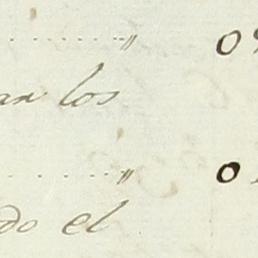 ........ „ 0
an los
........ „ 0
do el